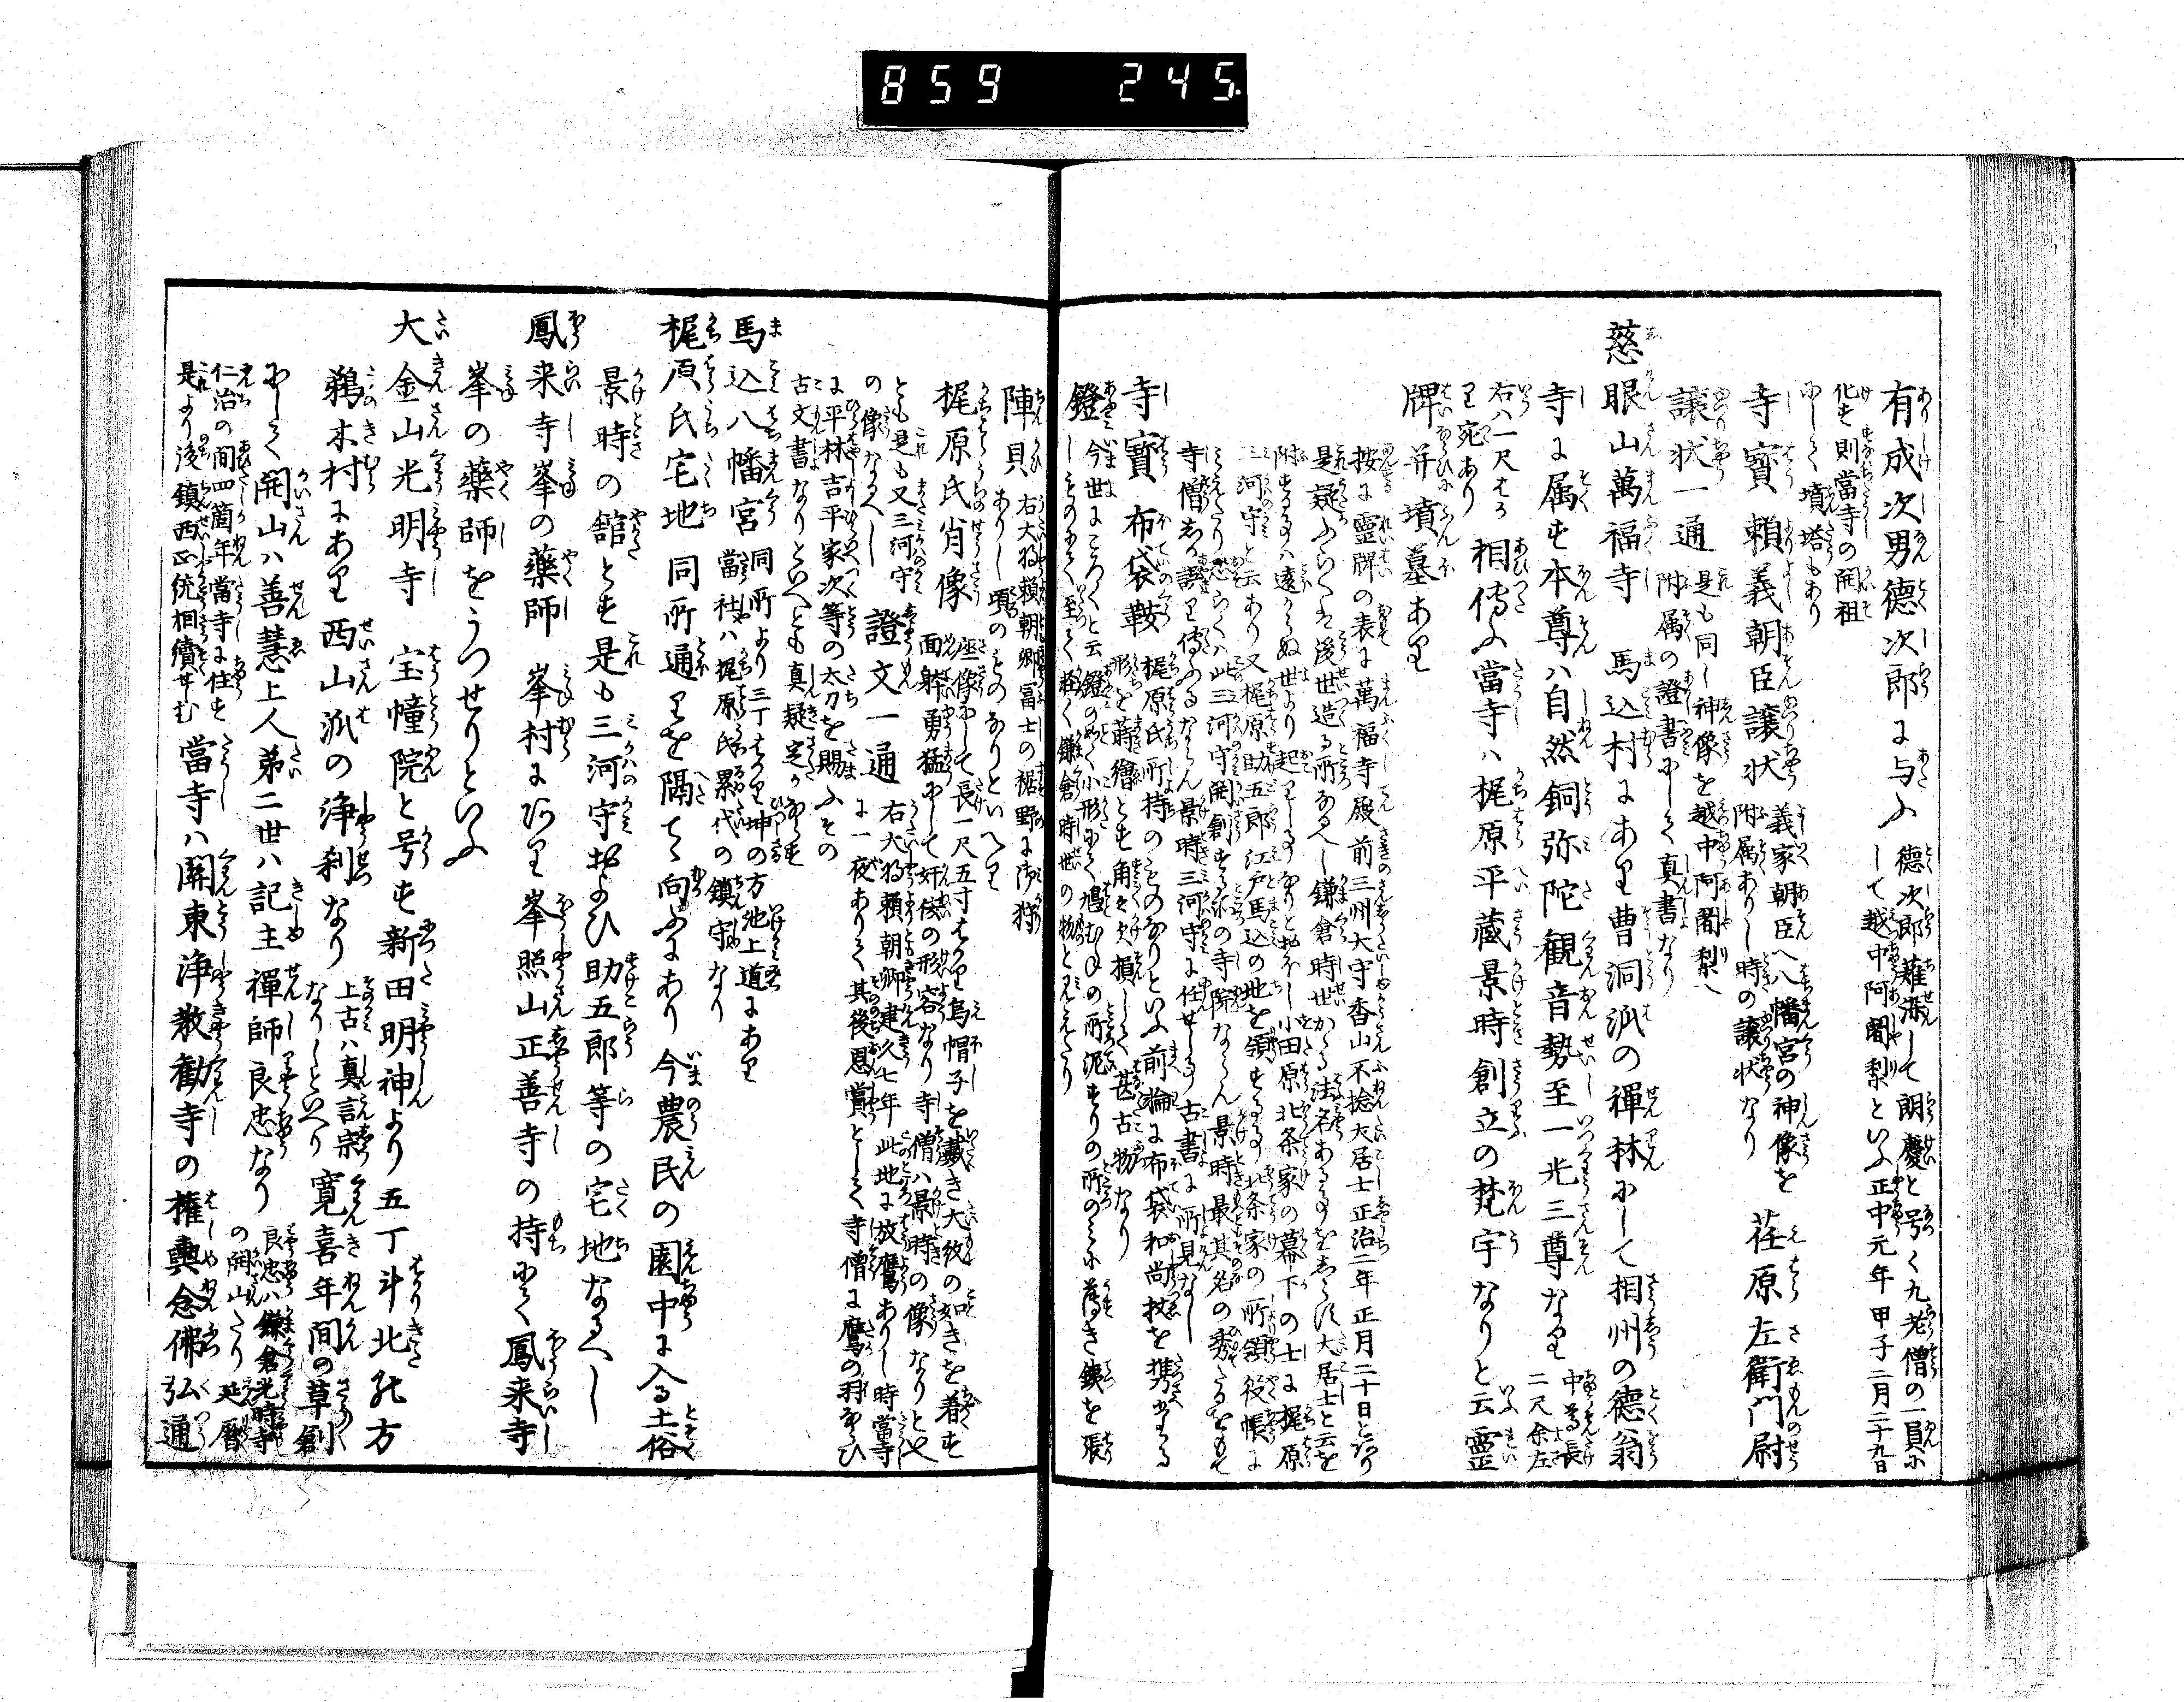 859 245.
有成次男德次郎に与ふ 德次郎薙染して朗慶と号く九老僧の一員に
して越中阿闍梨といふ正中元年甲子二月二十九日
化す則當寺の開祖
にして墳塔もあり
寺寳 頼義朝臣譲状 義家朝臣へ八幡宮の神像を
附属ありし時の譲状なり 荏原左衛門尉
譲状一通 是も同し神像を越中阿闍梨へ
附属の證書にして真書なり
慈眼山萬福寺 馬込村にあり曹洞派の禪林にして相州の德翁
寺に属す本尊ハ自然銅弥陀観音勢至一光三尊なり 中尊長
二尺余左
右ハ一尺
り宛あり 相傳ふ當寺ハ梶原平蔵景時創立の梵宇なりと云霊
牌并墳墓あり
按に靈牌の表に萬福寺殿前三州大守香山不捻大居士正治二年正月二十日とあり
是疑ふらくは後世造る所なるへし鎌倉時世かゝる法名あることをしらす大居士と云を
附することハ遠からぬ世より起りしことなりとおほし小田原北条家の幕下の士に梶原
三河守と云あり又梶原助五郎江戸馬込の地を領すること北条家の所領役帳に
みえたり恐らくハ此三河守開創する所の寺院ならん景時最其名の秀たるをもて
寺僧あら誤り傳ふるならん景時三河守に任せしこと古書に所見なし
寺寳 布袋鞍 梶原氏所持のものなりといふ前輪に布袋和尚杖を携ふる
形を蒔繪とす角々欠損しく甚古物なり
鐙 今世にころくと云鐙の如く小形にて鳩むねの所泥すりの所のミに薄き鉄を張
しものにて至て軽く鎌倉時世の物とみえたり
陣貝 右大将頼朝卿冨士の裾野に御狩
ありし頃のものなりといへり
梶原氏肖像 座像にして長一尺五寸はかり烏帽子を戴き大紋の如きを着す
面躰勇猛にして奸佞の形容なり寺僧ハ景時の像なりと云へ
とも是も又三河守
の像なるへし 證文一通 右大将頼朝卿建久七年此地に放鷹ありし時當寺
に一夜ありて其後恩賞として寺僧に鷹の羽ならひ
に平林吉平家次等の太刀を賜ふその
古文書なりといへとも真疑定かならす
馬込八幡宮 同所より三丁はかり坤の方池上道にあり
當社ハ梶原氏累代の鎮守なり
梶原氏宅地 同所通りを隔て向ふにあり今農民の園中に入る土俗
景時の舘とす是も三河守およひ助五郎等の宅地なるへし
鳳来寺峯の薬師 峯村にあり峯照山正善寺の持にて鳳来寺
峯の藥師をうつせりといふ
大金山光明寺 宝幢院と号す新田明神より五丁斗北の方
鵜木村にあり西山派の浄刹なり 上古ハ真言宗
なりしといへり 寛喜年間の草創
にして開山ハ善慧上人第二世ハ記主禪師良忠なり 良忠ハ鎌倉光明寺
の開山たり延暦
仁治の間四箇年當寺に住す
是より後鎮西正統相續せむ 當寺ハ關東浄教勧寺の權輿念佛弘通